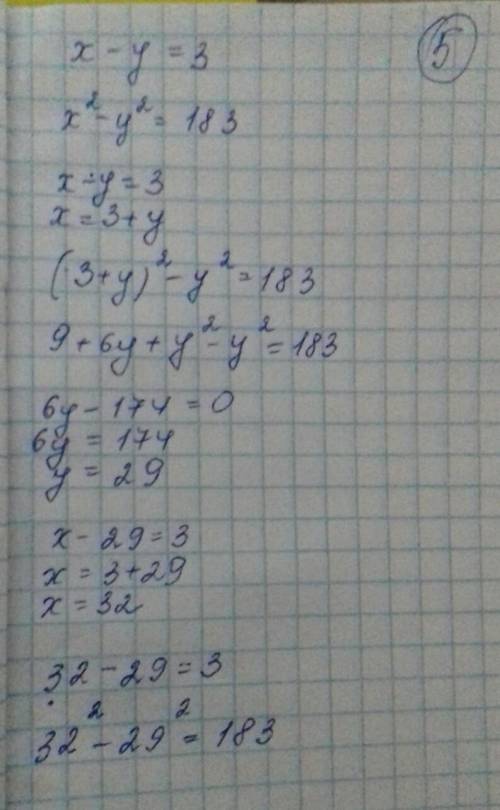 5
x - y = 3
x² - y² = 183
x - y = 3
x = 3 + y
(3 + y)² - y² = 183
9 + 6y + y² - y² = 183
6y - 174 = 0
6y = 174
y = 29
x - 29 = 3
x = 3 + 29
x = 32
32 - 29 = 3
32² - 29² = 183